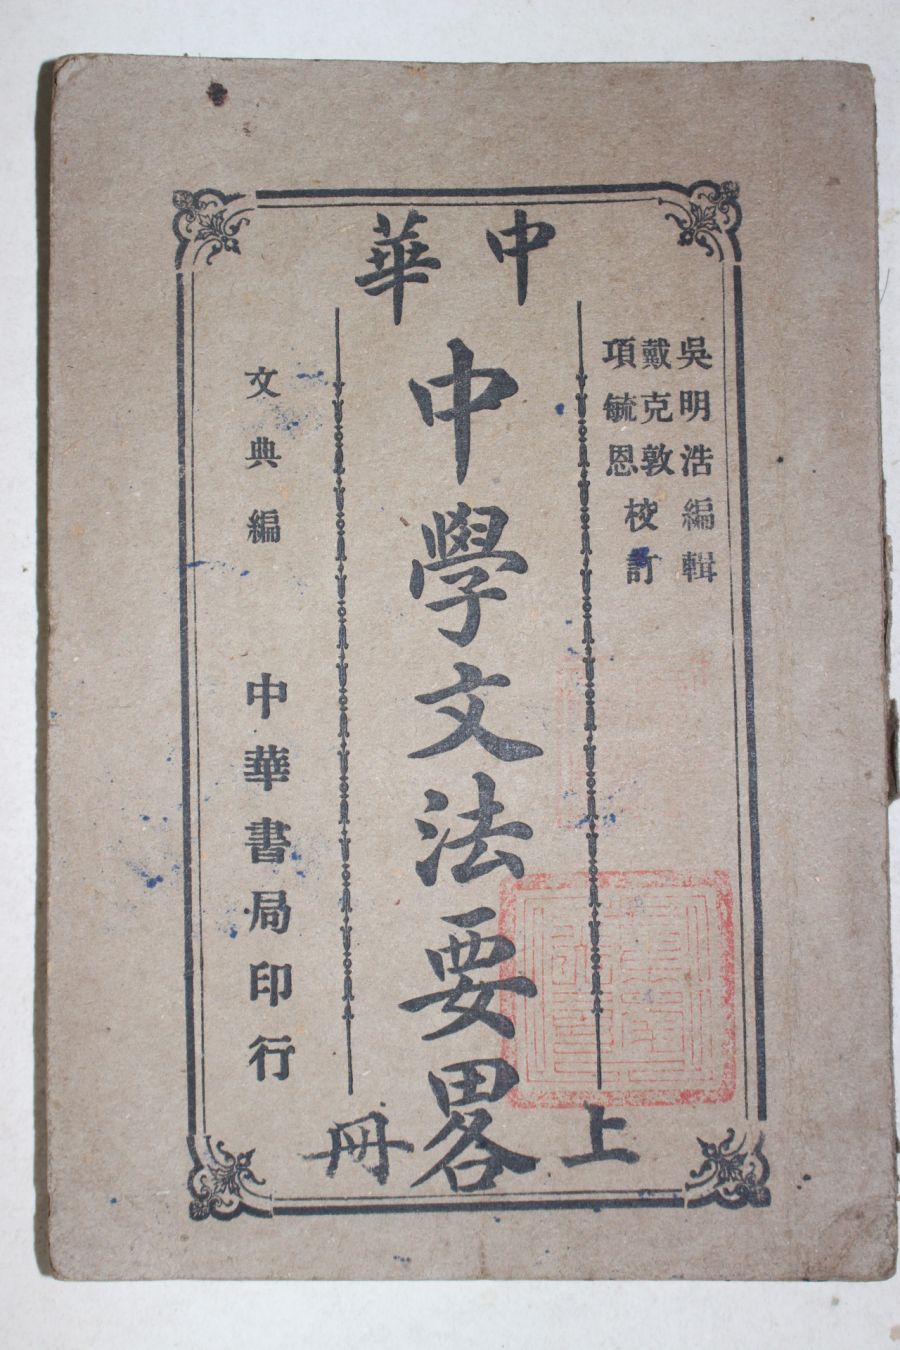 中華
吳明浩編輯
戴克敦
項毓恩
校訂
中學文法要畧
上冊
文典編
中華書局印行